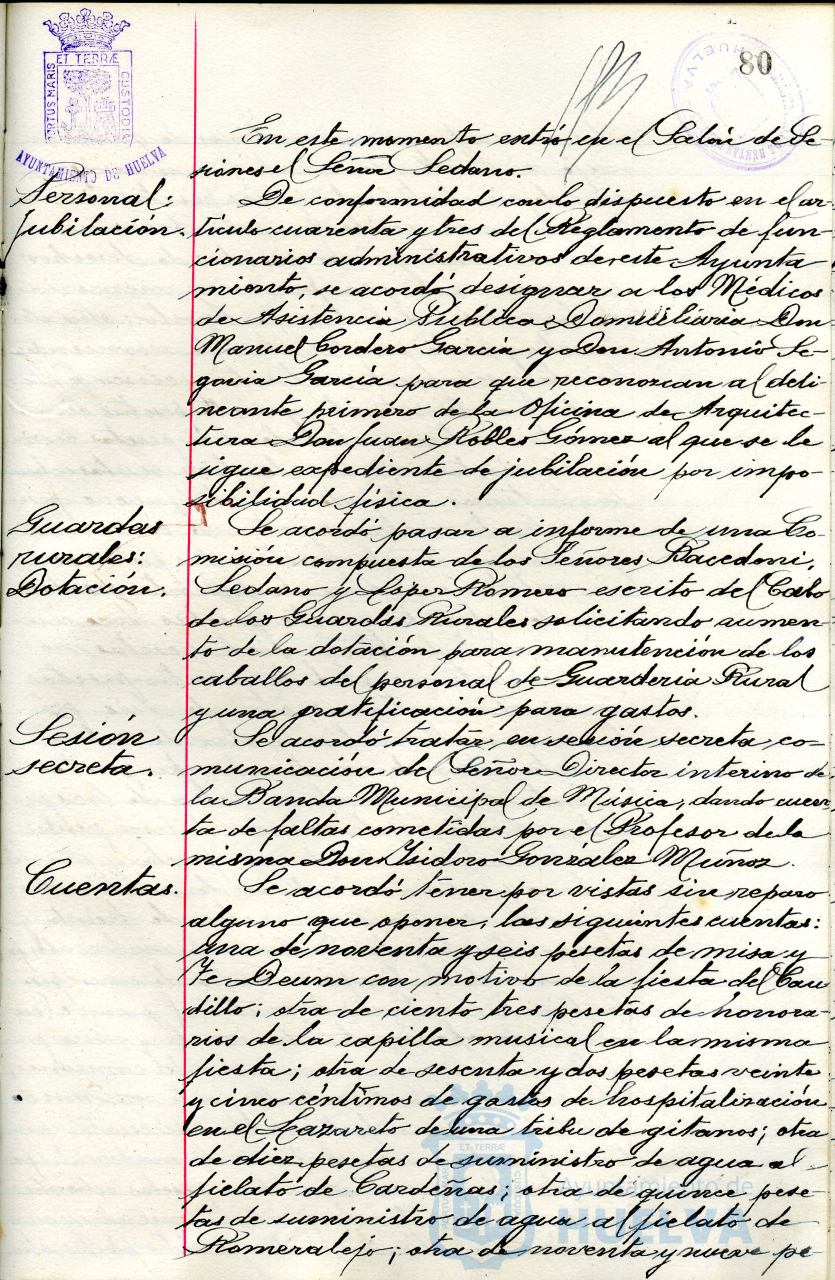 80
ET TERRÆ
PORTUS MARIS
CUSTODIA
AYUNTAMIENTO DE HUELVA
HUELVA
En este momento entró en el Salón de Se-
siones el Señor Sedano.
Personal:
Jubilación.
De conformidad con lo dispuesto en el ar-
tículo cuarenta y tres del Reglamento de fun-
cionarios administrativos de este Ayunta-
miento, se acordó designar a los Médicos
de Asistencia Pública Domiciliaria Don
Manuel Cordero García y Don Antonio Se-
govia García para que reconozcan al deli-
neante primero de la Oficina de Arquitec-
tura Don Juan Robles Gómez al que se le
sigue expediente de jubilación por impo-
sibilidad física.
Guardas
rurales:
Dotación.
Se acordó pasar a informe de una Co-
misión compuesta de los Señores
Sedano y López Romero escrito del Cabo
de los Guardas Rurales solicitando aumen-
to de la dotación para manutención de los
caballos del personal de Guardería Rural
y una gratificación para gastos.
Sesión
secreta.
Se acordó tratar, en sesión secreta, co-
municación del Señor Director interino de
la Banda Municipal de Música, dando cuen-
ta de faltas cometidas por el Profesor de la
misma Don Isidoro González Muñoz.
Cuentas.
Se acordó tener por vistas sin reparo
alguno que oponer, las siguientes cuentas:
una de noventa y seis pesetas de misa y
Te Deum con motivo de la fiesta del Cau-
dillo; otra de ciento tres pesetas de honora-
rios de la capilla musical en la misma
fiesta; otra de sesenta y dos pesetas veinte
y cinco céntimos de gastos de hospitalización
en el Lazareto de una tribu de gitanos; otra
de diez pesetas de suministro de agua al
fielato de Cardeñas; otra de quince pese-
tas de suministro de agua al fielato de
Romeralejo; otra de noventa y nueve pe-
Ayuntamiento de
HUELVA